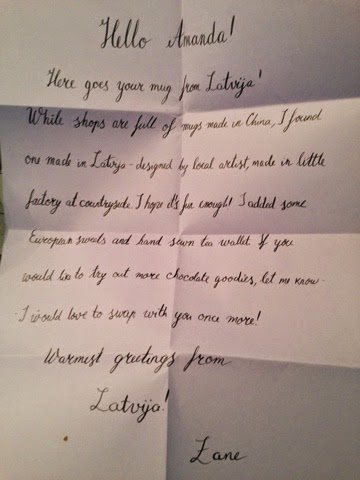 Hello Amanda!
Here goes your mug from Latvija!
While shops are full of mugs made in China, I found
one made in Latvija - designed by local artist, made in little
factory at countryside. I hope it's fun enough! I added some
European sweats and hand sewn tea wallet. If you
would like to try out more chocolate goodies, let me know -
- I would love to swap with you once more!
Warmest greetings from
Latvija!
Zane